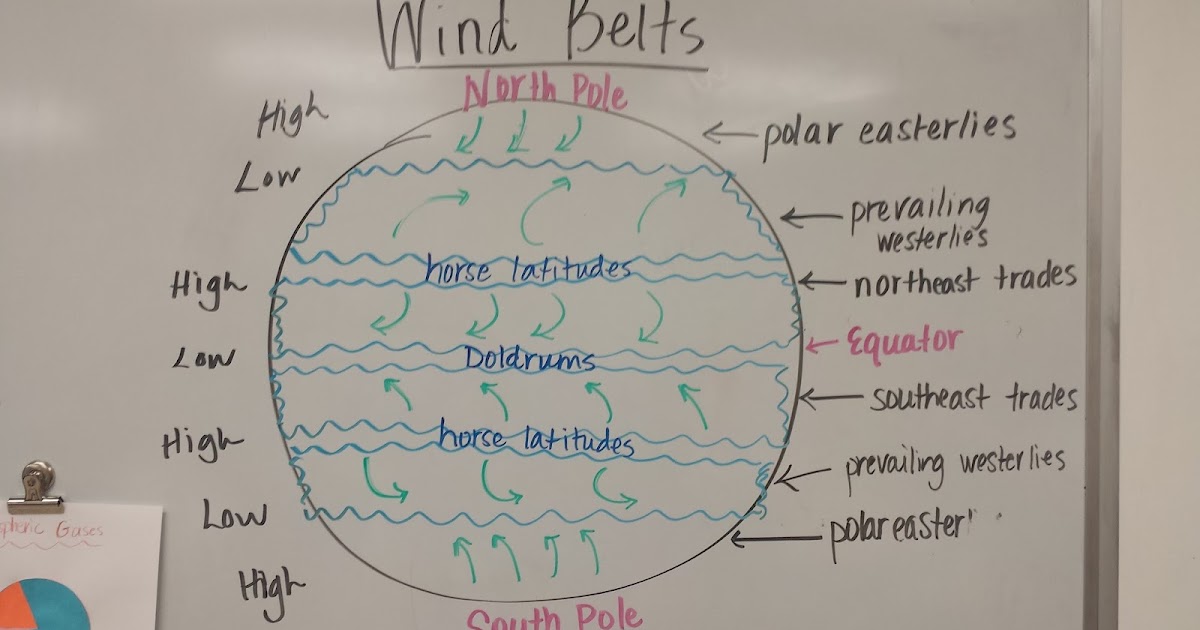 Wind Belts
North Pole
High
polar easterlies
Low
prevailing
westerlies
horse latitudes
High
northeast trades
Low
Doldrums
Equator
southeast trades
High
horse latitudes
prevailing westerlies
Low
polar easter
High
South Pole
Gases